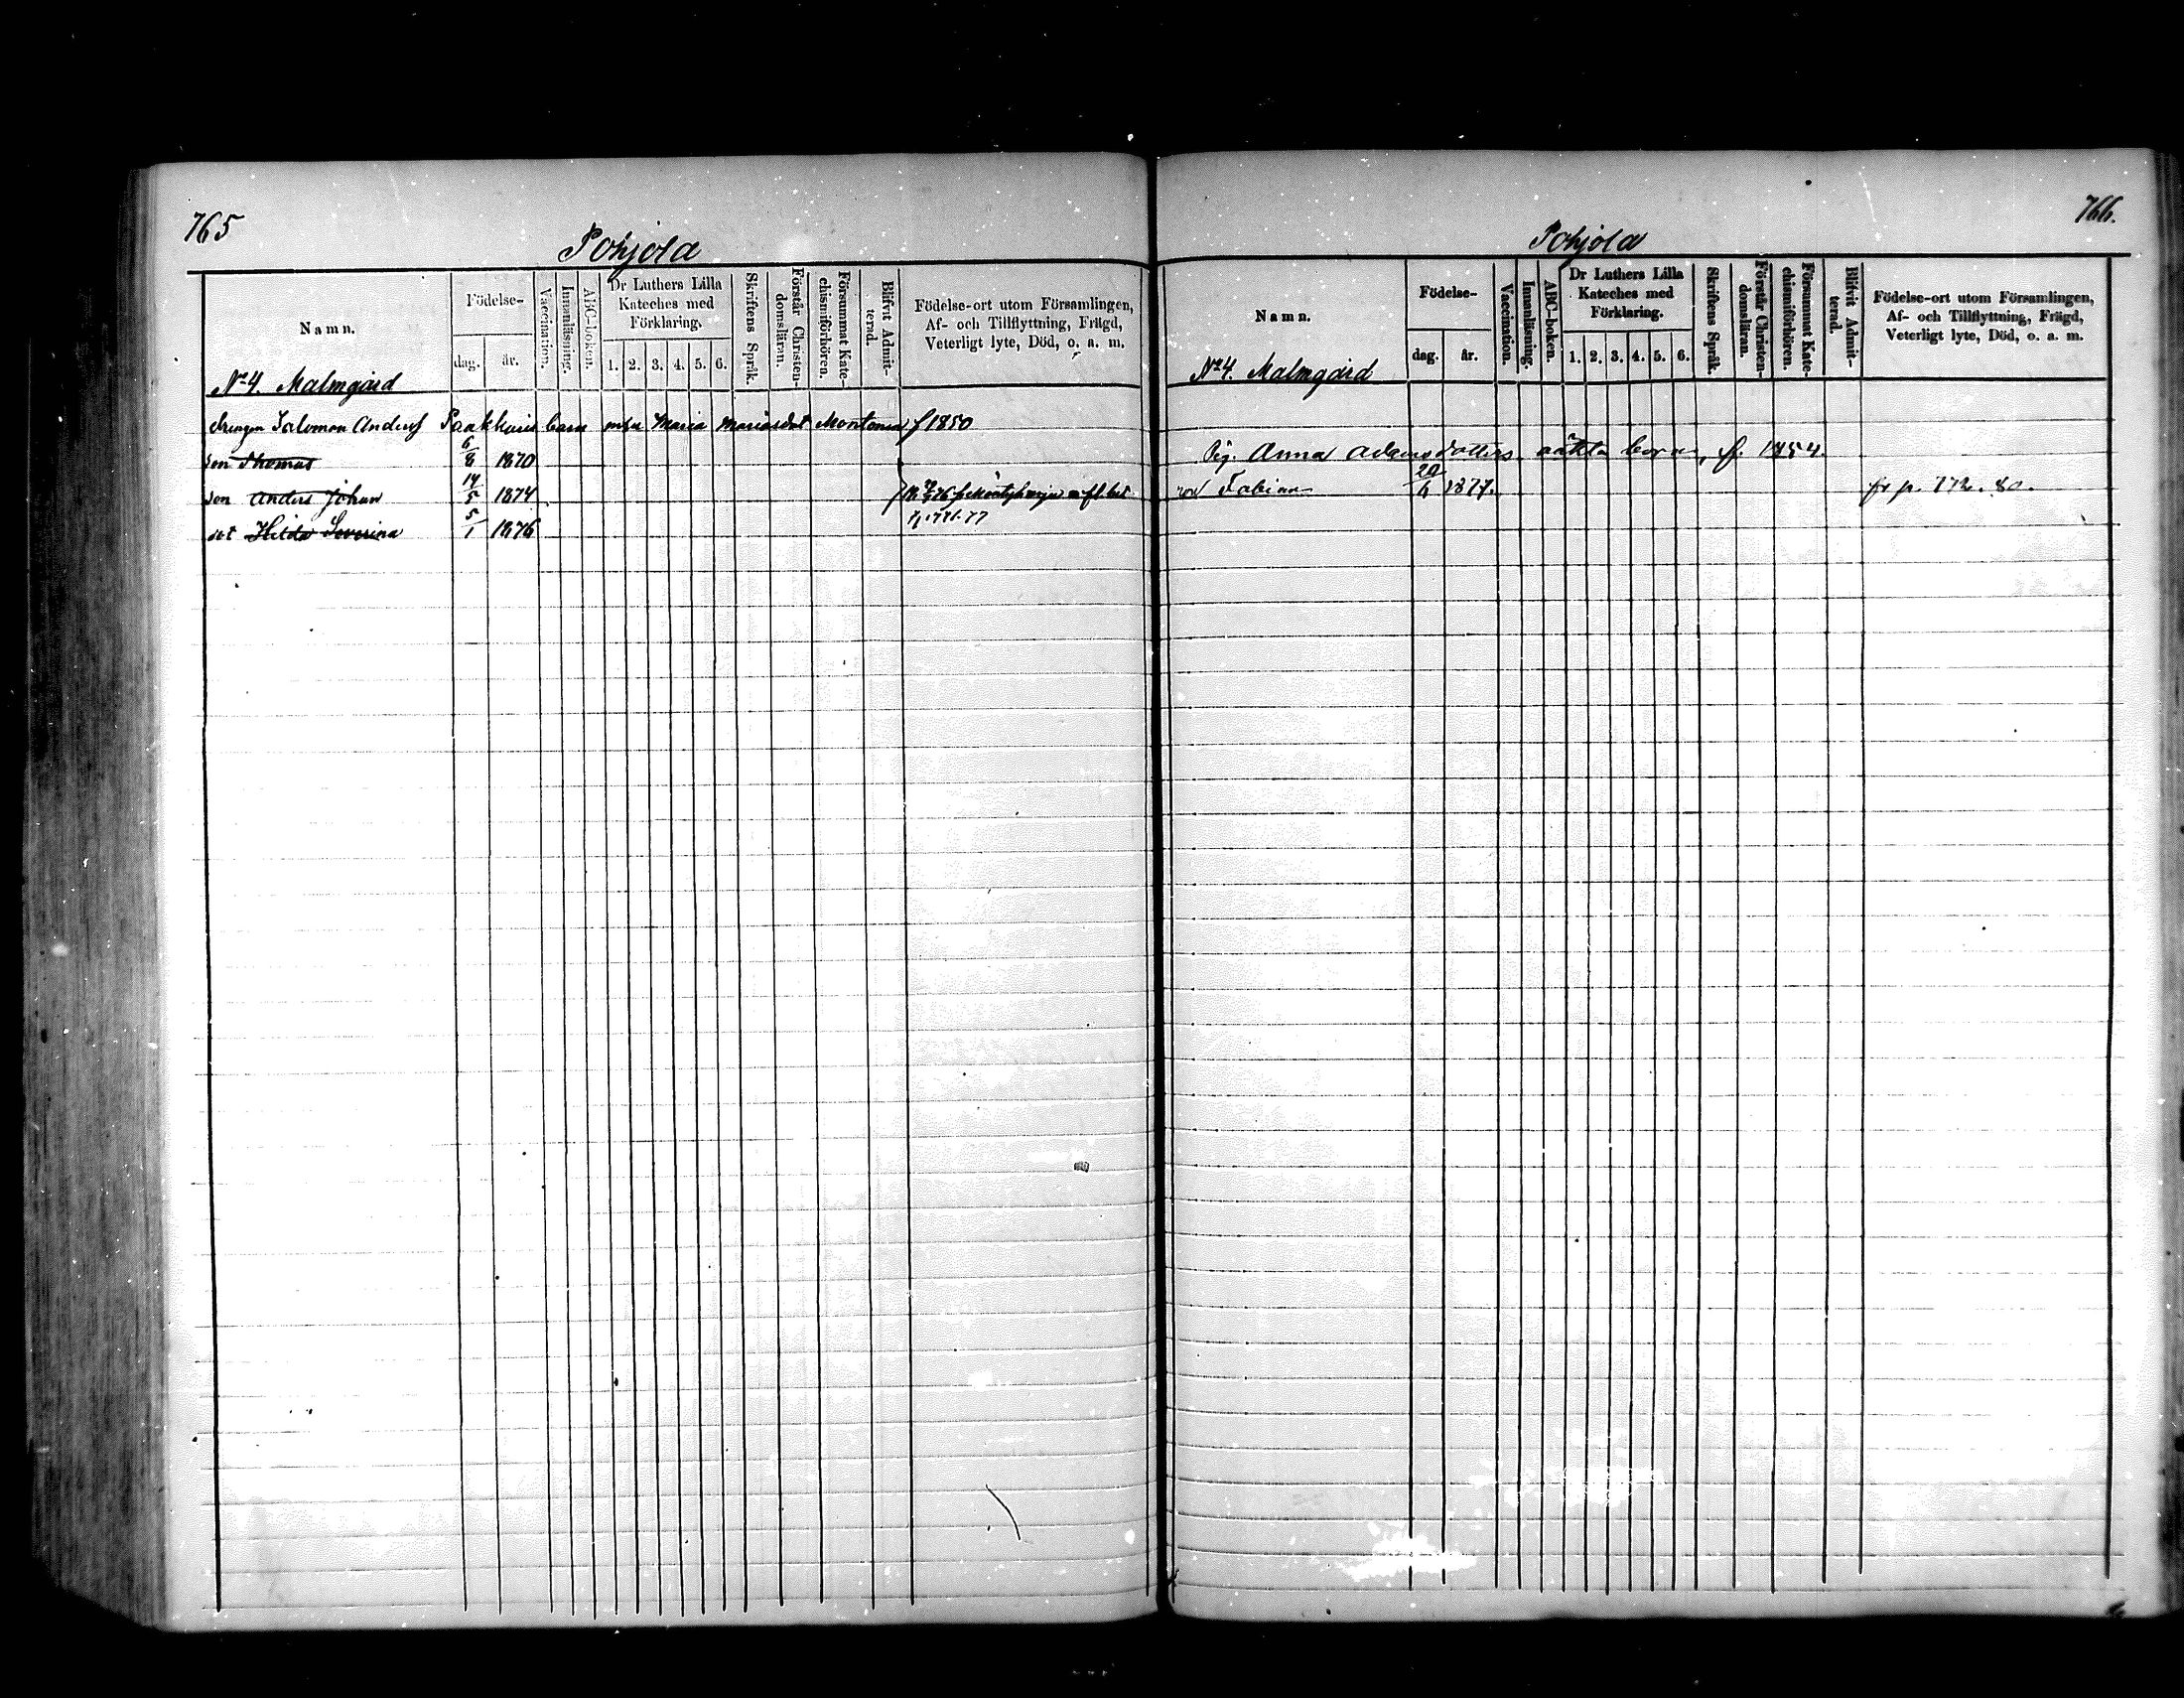 765
Pohjola
Namn.
Födelse-
dag.
år.
Vaccination.
Innanläsning.
ABC-boken.
Dr Luthers Lilla
Kateches med
Förklaring.
1. 2. 3. 4. 5. 6.
Skriftens Språk.
Förstår Christen-
domsläran.
Försummat Kate-
chismiförhören.
Blifvit Admit-
terad.
Födelse-ort utom Församlingen,
Af- och Tillflyttning, Frägd,
Veterligt lyte, Död, o. a. m.
No 4. Malmgård
drengen Salomon Anderss Paakkunis barn m hu Maria Mariasdot f 1850
son Thomas 6/8 1870
son Anders Johan 14/5 1874
dot Hilda Severina 5/1 1876
766.
Pohjola
Namn.
Födelse-
dag.
år.
Vaccination.
Innanläsning.
ABC-boken.
Dr Luthers Lilla
Kateches med
Förklaring.
1. 2. 3. 4. 5. 6.
Skriftens Språk.
Förstår Christen-
domsläran.
Försummat Kate-
chismiförhören.
Blifvit Admit-
terad.
Födelse-ort utom Församlingen,
Af- och Tillflyttning, Frägd,
Veterligt lyte, Död, o. a. m.
No 4. Malmgård
Pig. Anna Adamsdotters oäkta barn, f. 1854.
Fabian 20/6 1877. fr p. 772. 80.